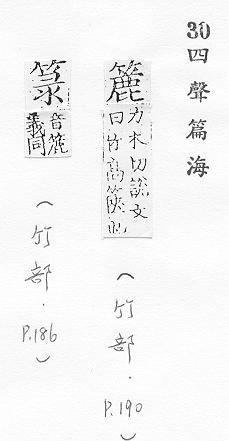 30四聲篇海
簏
力木切說文
曰竹高篋也
(竹部.P.190)
箓
音簏
義同
(竹部.P.186)